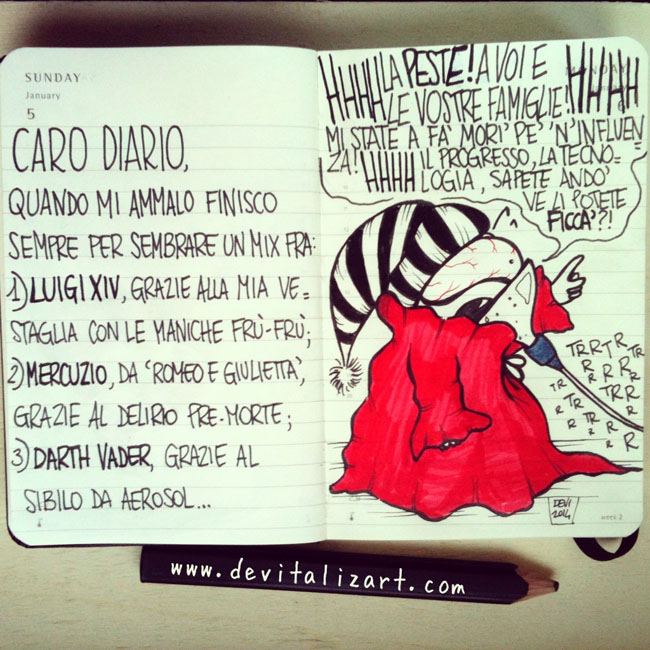 SUNDAY
January
5
CARO DIARIO,
QUANDO MI AMMALO FINISCO
SEMPRE PER SEMBRARE UN MIX FRA:
1) LUIGI XIV, GRAZIE ALLA MIA VE=
STAGLIA CON LE MANICHE FRÙ-FRÙ;
2) MERCUZIO, DA 'ROMEO E GIULIETTA',
GRAZIE AL DELIRIO PRE-MORTE;
3) DARTH VADER, GRAZIE AL
SIBILO DA AEROSOL...
HHHH LA PESTE! A VOI E
LE VOSTRE FAMIGLIE! HHHH
MI STATE A FA' MORI' PE' 'N'INFLUEN
ZA! HHHH IL PROGRESSO, LA TECNO=
LOGIA, SAPETE ANDO'
VE LI POTETE
FICCA'?!
TR TR TR
R R R
TR TR R
R TR R
TR R
R
DEVI
2014
week 2
www.devitalizart.com